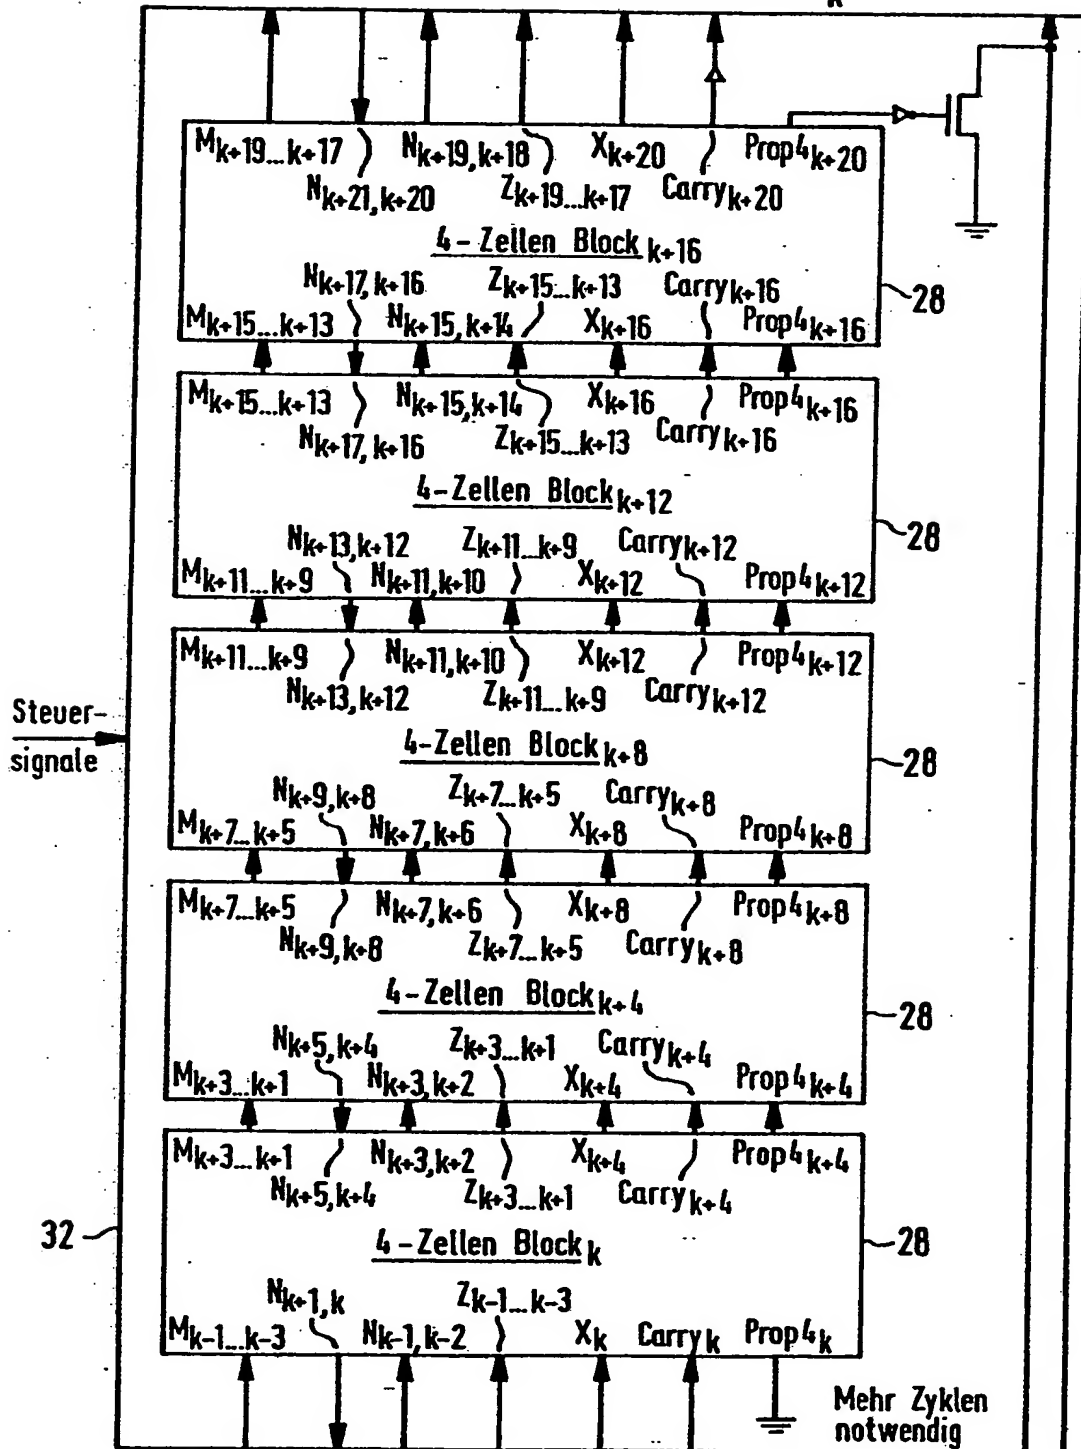 k
M k+19...k+17 N k+19,k+18 X k+20 Prop4 k+20
N k+21,k+20 Z k+19...k+17 Carry k+20
4-Zellen Block k+16
N k+17,k+16 Z k+15...k+13 Carry k+16
28
M k+15...k+13 N k+15,k+14 X k+16 Prop4 k+16
M k+15...k+13 N k+15,k+14 X k+16 Prop4 k+16
N k+17,k+16 Z k+15...k+13 Carry k+16
4-Zellen Block k+12
28
N k+13,k+12 Z k+11...k+9 Carry k+12
M k+11...k+9 N k+11,k+10 X k+12 Prop4 k+12
M k+11...k+9 N k+11,k+10 X k+12 Prop4 k+12
N k+13,k+12 Z k+11...k+9 Carry k+12
Steuer-
signale
4-Zellen Block k+8
28
N k+9,k+8 Z k+7...k+5 Carry k+8
M k+7...k+5 N k+7,k+6 X k+8 Prop4 k+8
M k+7...k+5 N k+7,k+6 X k+8 Prop4 k+8
N k+9,k+8 Z k+7...k+5 Carry k+8
4-Zellen Block k+4
28
N k+5,k+4 Z k+3...k+1 Carry k+4
M k+3...k+1 N k+3,k+2 X k+4 Prop4 k+4
M k+3...k+1 N k+3,k+2 X k+4 Prop4 k+4
N k+5,k+4 Z k+3...k+1 Carry k+4
32
4-Zellen Block k
28
N k+1,k Z k-1...k-3
M k-1...k-3 N k-1,k-2 X k Carry k Prop4 k
Mehr Zyklen
notwendig